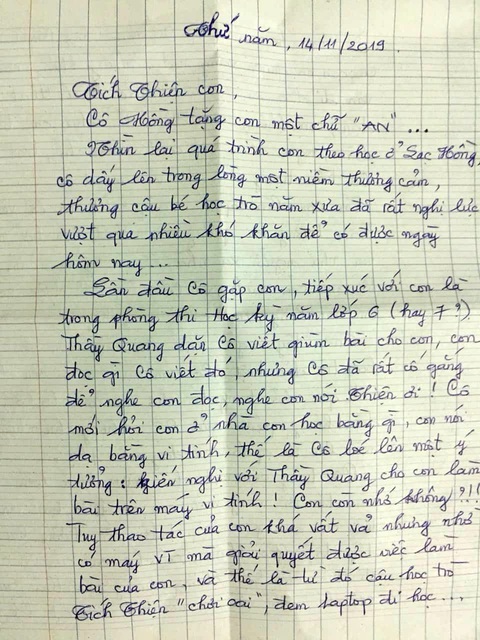 Thứ năm, 14/11/2019.
Tích Thiện con,
Cô Hồng tặng con một chữ "AN"...
Nhìn lại quá trình con theo học ở Lạc Hồng,
cô dấy lên trong lòng một niềm thương cảm,
thương cậu bé học trò năm xưa đã rất nghị lực
vượt qua nhiều khó khăn để có được ngày
hôm nay...
Lần đầu cô gặp con, tiếp xúc với con là
trong phòng thi Học kỳ năm lớp 6 (hay 7?)
Thầy Quang dặn cô viết giùm bài cho con, con
đọc gì cô viết đó, nhưng cô đã rất cố gắng
để nghe con đọc, nghe con nói. Thiện ơi! Cô
mới hỏi con ở nhà con học bằng gì, con nói
dạ bằng vi tính, thế là cô loé lên một ý
tưởng: kiến nghị với Thầy Quang cho con làm
bài trên máy vi tính! Con còn nhớ không?!!
Tuy thao tác của con khá vất vả nhưng nhờ
có máy vi mà giải quyết được việc làm
bài của con, và thế là từ đó cậu học trò
Tích Thiện "chơi oai", đem laptop đi học...